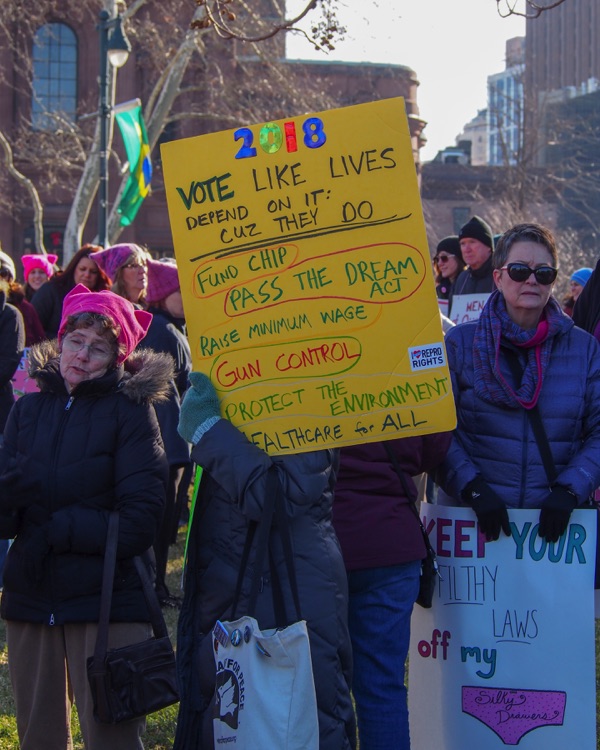 2018
VOTE LIKE LIVES
DEPEND ON IT:
CUZ THEY DO
FUND CHIP
PASS THE DREAM
ACT
RAISE MINIMUM WAGE
GUN CONTROL
I REPRO
RIGHTS
PROTECT THE
ENVIRONMENT
EALTHCARE for ALL
KEEP YOUR
FILTHY
LAWS
off my
Silky
Drawers
FOR PEACE